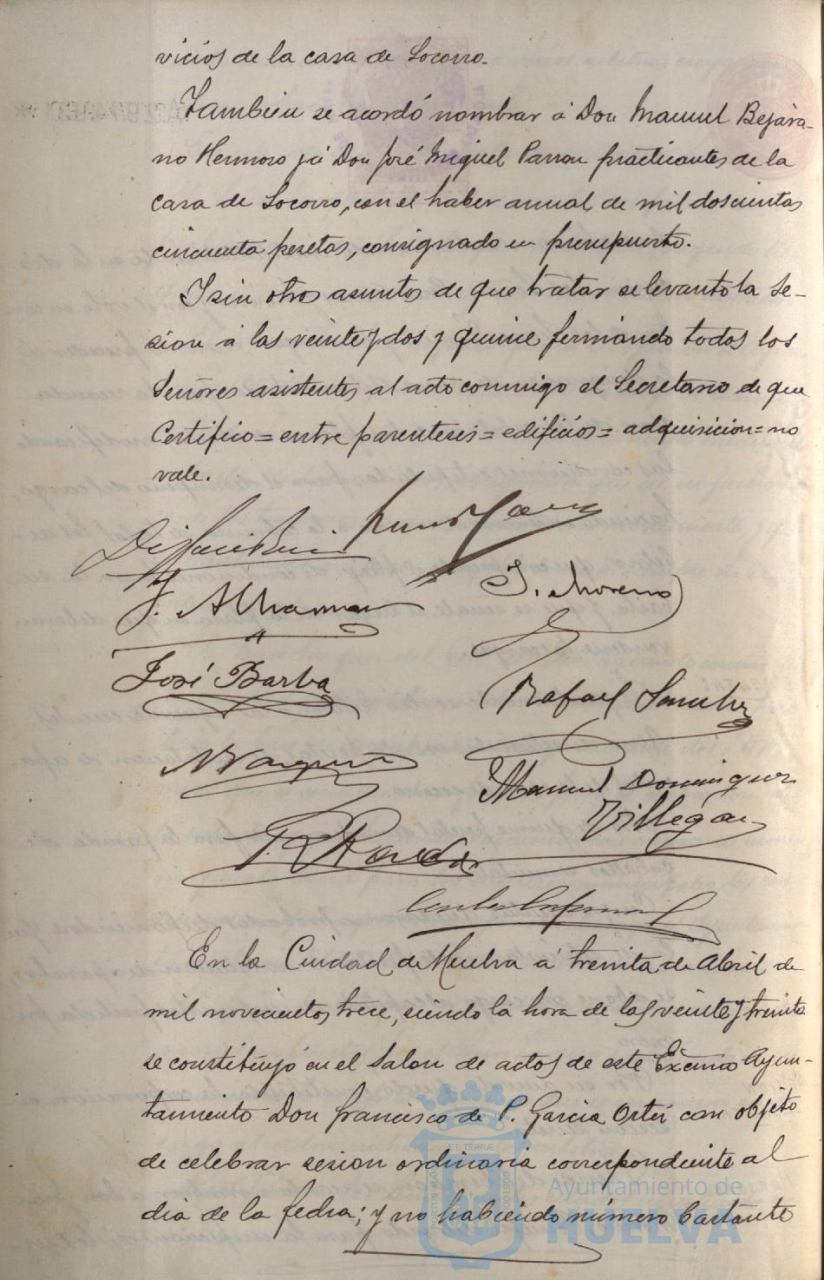 vicios de la casa de Socorro.
Tambien se acordó nombrar á Don Manuel Bejára-
no Hermoso y á Don José Miguel Parron practicantes de la
casa de Socorro, con el haber anual de mil doscientas
cincuenta pesetas, consignado en presupuesto.
I sin otros asuntos de que tratar se levantó la Se-
sion á las veinte y dos y quince firmando todos los
Señores asistentes al acto conmigo el Secretario de que
Certifico = entre parenteses = edificios = adquisicion = no
vale.
J. Alhama
J. Moreno
José Barba
Rafael Sanchez
N Vazquez
Manuel Dominguez
Villegas
En la Ciudad de Huelva á treinta de Abril de
mil novecientos trece, siendo la hora de las veinte y treinta
se constituyó en el Salon de actos de este Excmo Ayun-
tamiento Don Francisco de P. Garcia Ortiz con objeto
de celebrar sesion ordinaria correspondiente al
dia de la fecha; y no habiendo número bastante
Ayuntamiento de
HUELVA